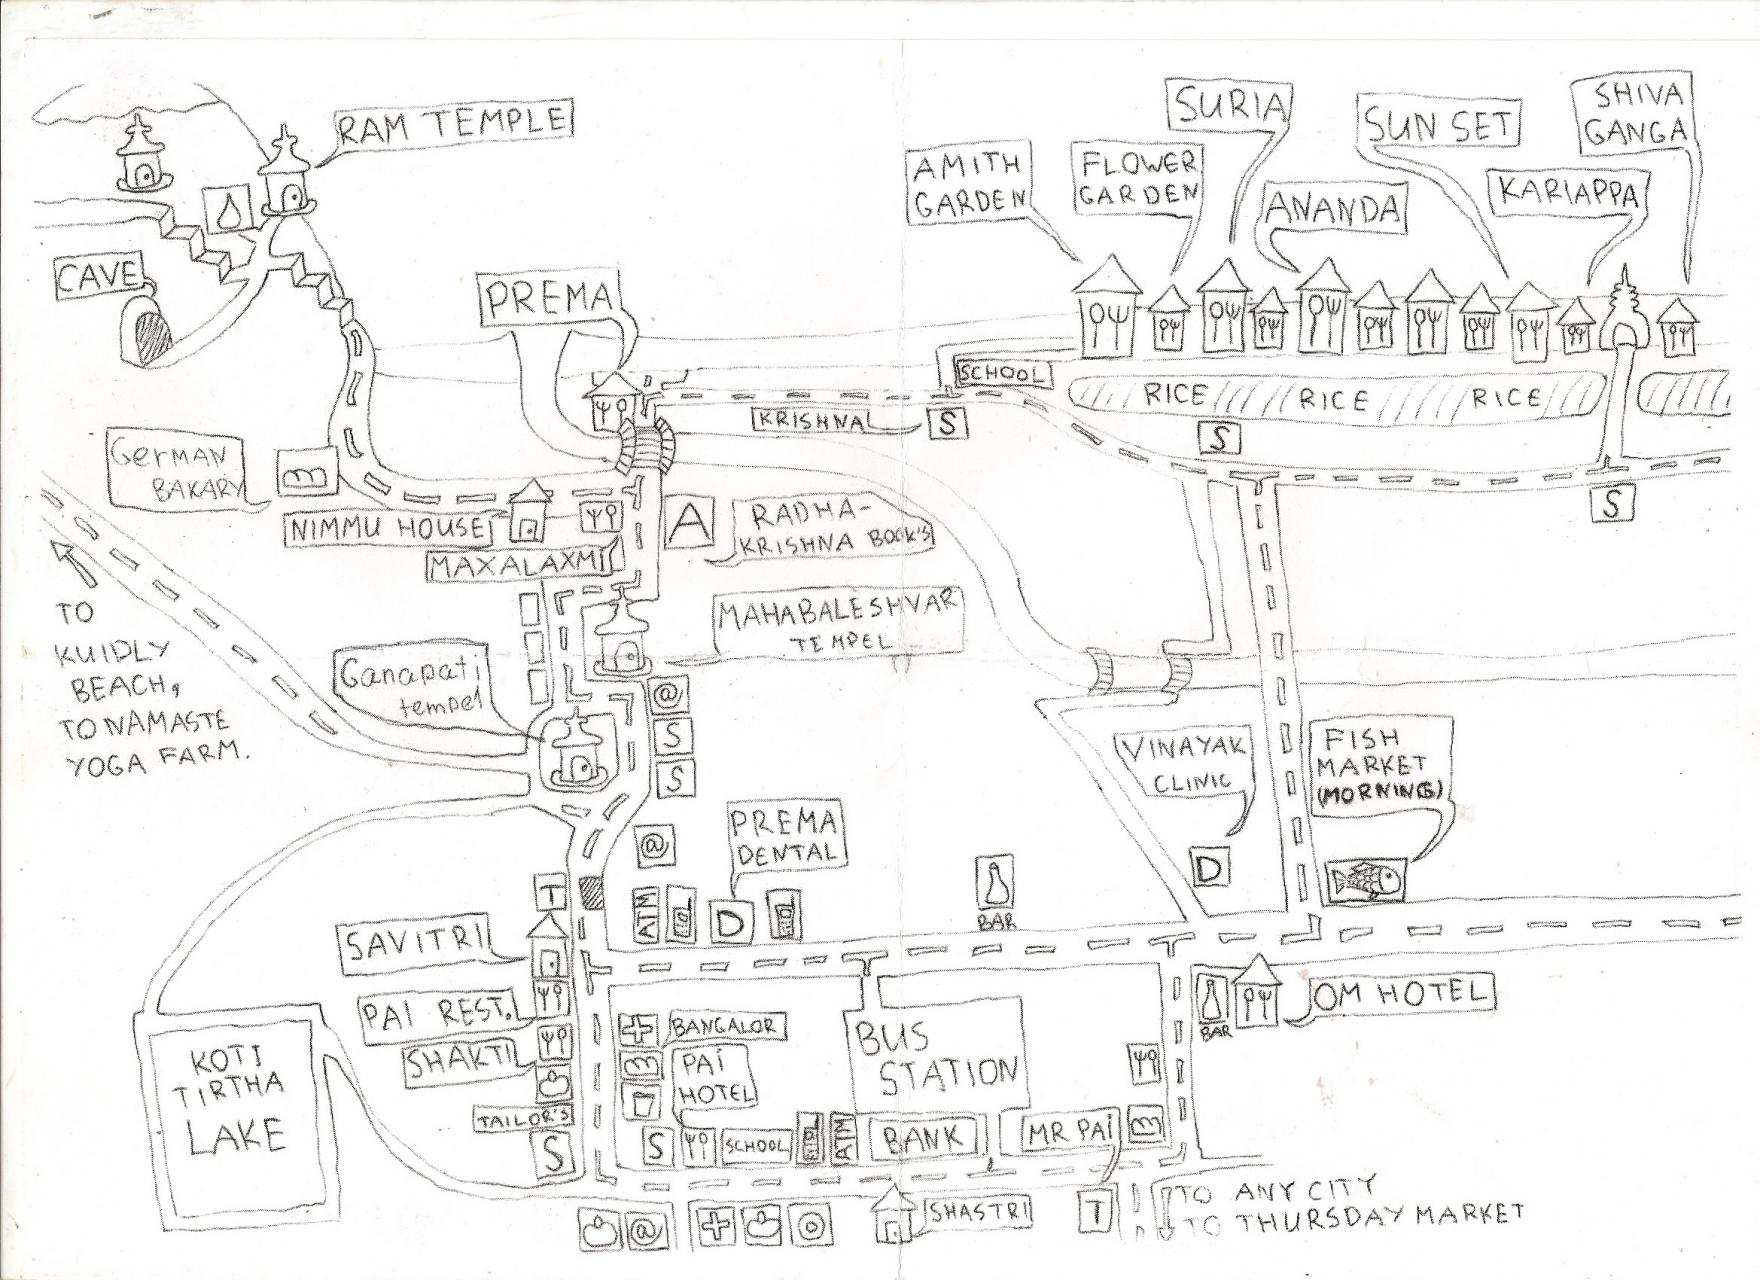 RAM TEMPLE
CAVE
PREMA
AMITH
GARDEN
FLOWER
GARDEN
SURIA
ANANDA
SUN SET
KARIAPPA
SHIVA
GANGA
SCHOOL
KRISHNA
S
RICE
RICE
RICE
S
S
GERMAN
BAKARY
NIMMU HOUSE
MAXALAXMI
A
RADHA-
KRISHNA BOOK'S
MAHABALESHVAR
TEMPEL
Ganapati
tempel
TO
KUIDLY
BEACH,
TO NAMASTE
YOGA FARM.
@
S
S
@
VINAYAK
CLINIC
D
FISH
MARKET
(MORNING)
PREMA
DENTAL
T
ATM
D
BAR
SAVITRI
PAI REST.
SHAKTI
TAILOR'S
S
BANGALOR
PAI
HOTEL
S
SCHOOL
ATM
BUS
STATION
BANK
MR PAI
BAR
OM HOTEL
KOTI
TIRTHA
LAKE
@
SHASTRI
T
TO ANY CITY
TO THURSDAY MARKET